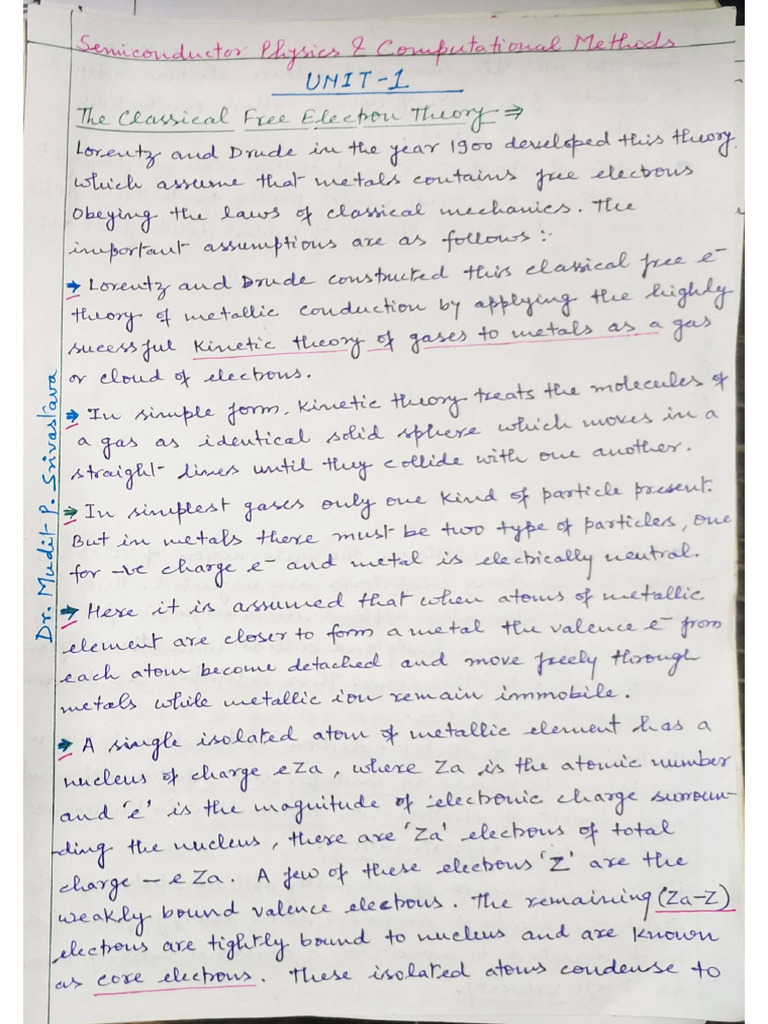 Semiconductor Physics & Computational Methods
UNIT-1
The Classical Free Electron Theory ⇒
Lorentz and Drude in the year 1900 developed this theory
which assume that metals contains free electrons
Obeying the laws of classical mechanics. The
important assumptions are as follows:-
→ Lorentz and Drude constructed this classical free e⁻
theory of metallic conduction by applying the highly
sucessful kinetic theory of gases to metals as a gas
or cloud of electrons.
→ In simple form, kinetic theory treats the molecules of
a gas as identical solid sphere which moves in a
straight lines until they collide with one another.
→ In simplest gases only one kind of particle present.
But in metals there must be two type of particles, one
for -ve charge e⁻ and metal is electrically neutral.
→ Here it is assumed that when atoms of metallic
element are closer to form a metal the valence e⁻ from
each atom become detached and move freely through
metals while metallic ion remain immobile.
→ A single isolated atom of metallic element has a
nucleus of charge eZa, where Za is the atomic number
and 'e' is the magnitude of electronic charge surroun-
-ding the nucleus, there are 'Za' electrons of total
charge - eZa. A few of these electrons 'Z' are the
weakly bound valence electrons. The remaining (Za-Z)
electrons are tightly bound to nucleus and are known
as core electrons. These isolated atoms condense to
Dr. Mudit P. Srivastava